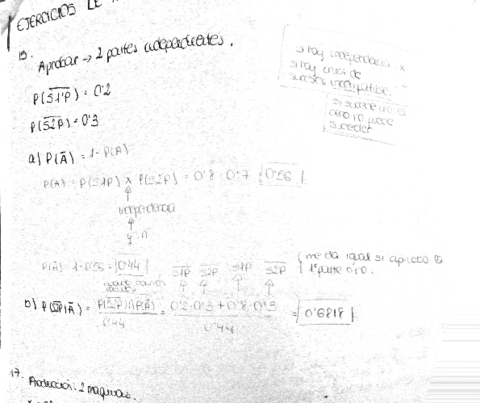 EJERCICIOS DE
15.
Aprobar → 2 partes independientes.
si hay independencia x
si hay unión de
sucesos incompatible
si sucede no
otro no puede
suceder
P(S̅1̅P̅) = 0'2
P(S̅2̅P̅) = 0'3
a) P(A̅) = 1 - P(A)
P(A) = P(S1P) x P(S2P) = 0'8 · 0'7 = 0'56
independencia
y n
P(A̅) = 1 - 0'56 = 0'44
S̅1̅P̅ S̅2̅P̅ S1P S̅2̅P̅
me da igual si apruebo la
1ª parte o no.
b) P(S̅2̅P̅|A̅) = P(S̅2̅P̅)∩P(A̅) / 0'44 = 0'2·0'3 + 0'8·0'3 / 0'44 = 0'6818
17. Producción: 2 máquinas.